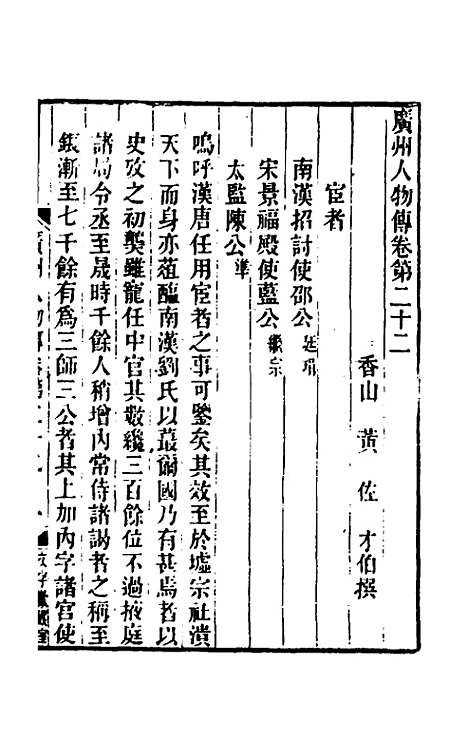 廣州人物傳卷第二十二
香山 黃 佐 才伯撰
宦者
南漢招討使邵公廷琄
宋景福殿使藍公繼宗
太監陳公準
嗚呼漢唐任用宦者之事可鑒矣其效至於墟宗社潰
天下而身亦菹醢南漢劉氏以蕞爾國乃有甚焉者以
史攷之初龑雖寵任中官其數纔三百餘位不過掖庭
諸局令丞至晟時千餘人稍增內常侍諸謁者之稱至
鋹漸至七千餘有爲三師三公者其上加內字諸官使